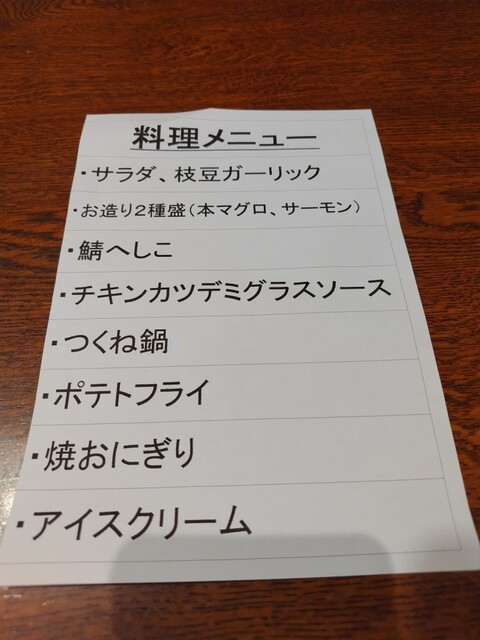 料理メニュー
・サラダ、枝豆ガーリック
・お造り2種盛(本マグロ、サーモン)
・鯖へしこ
・チキンカツデミグラスソース
・つくね鍋
・ポテトフライ
・焼おにぎり
・アイスクリーム